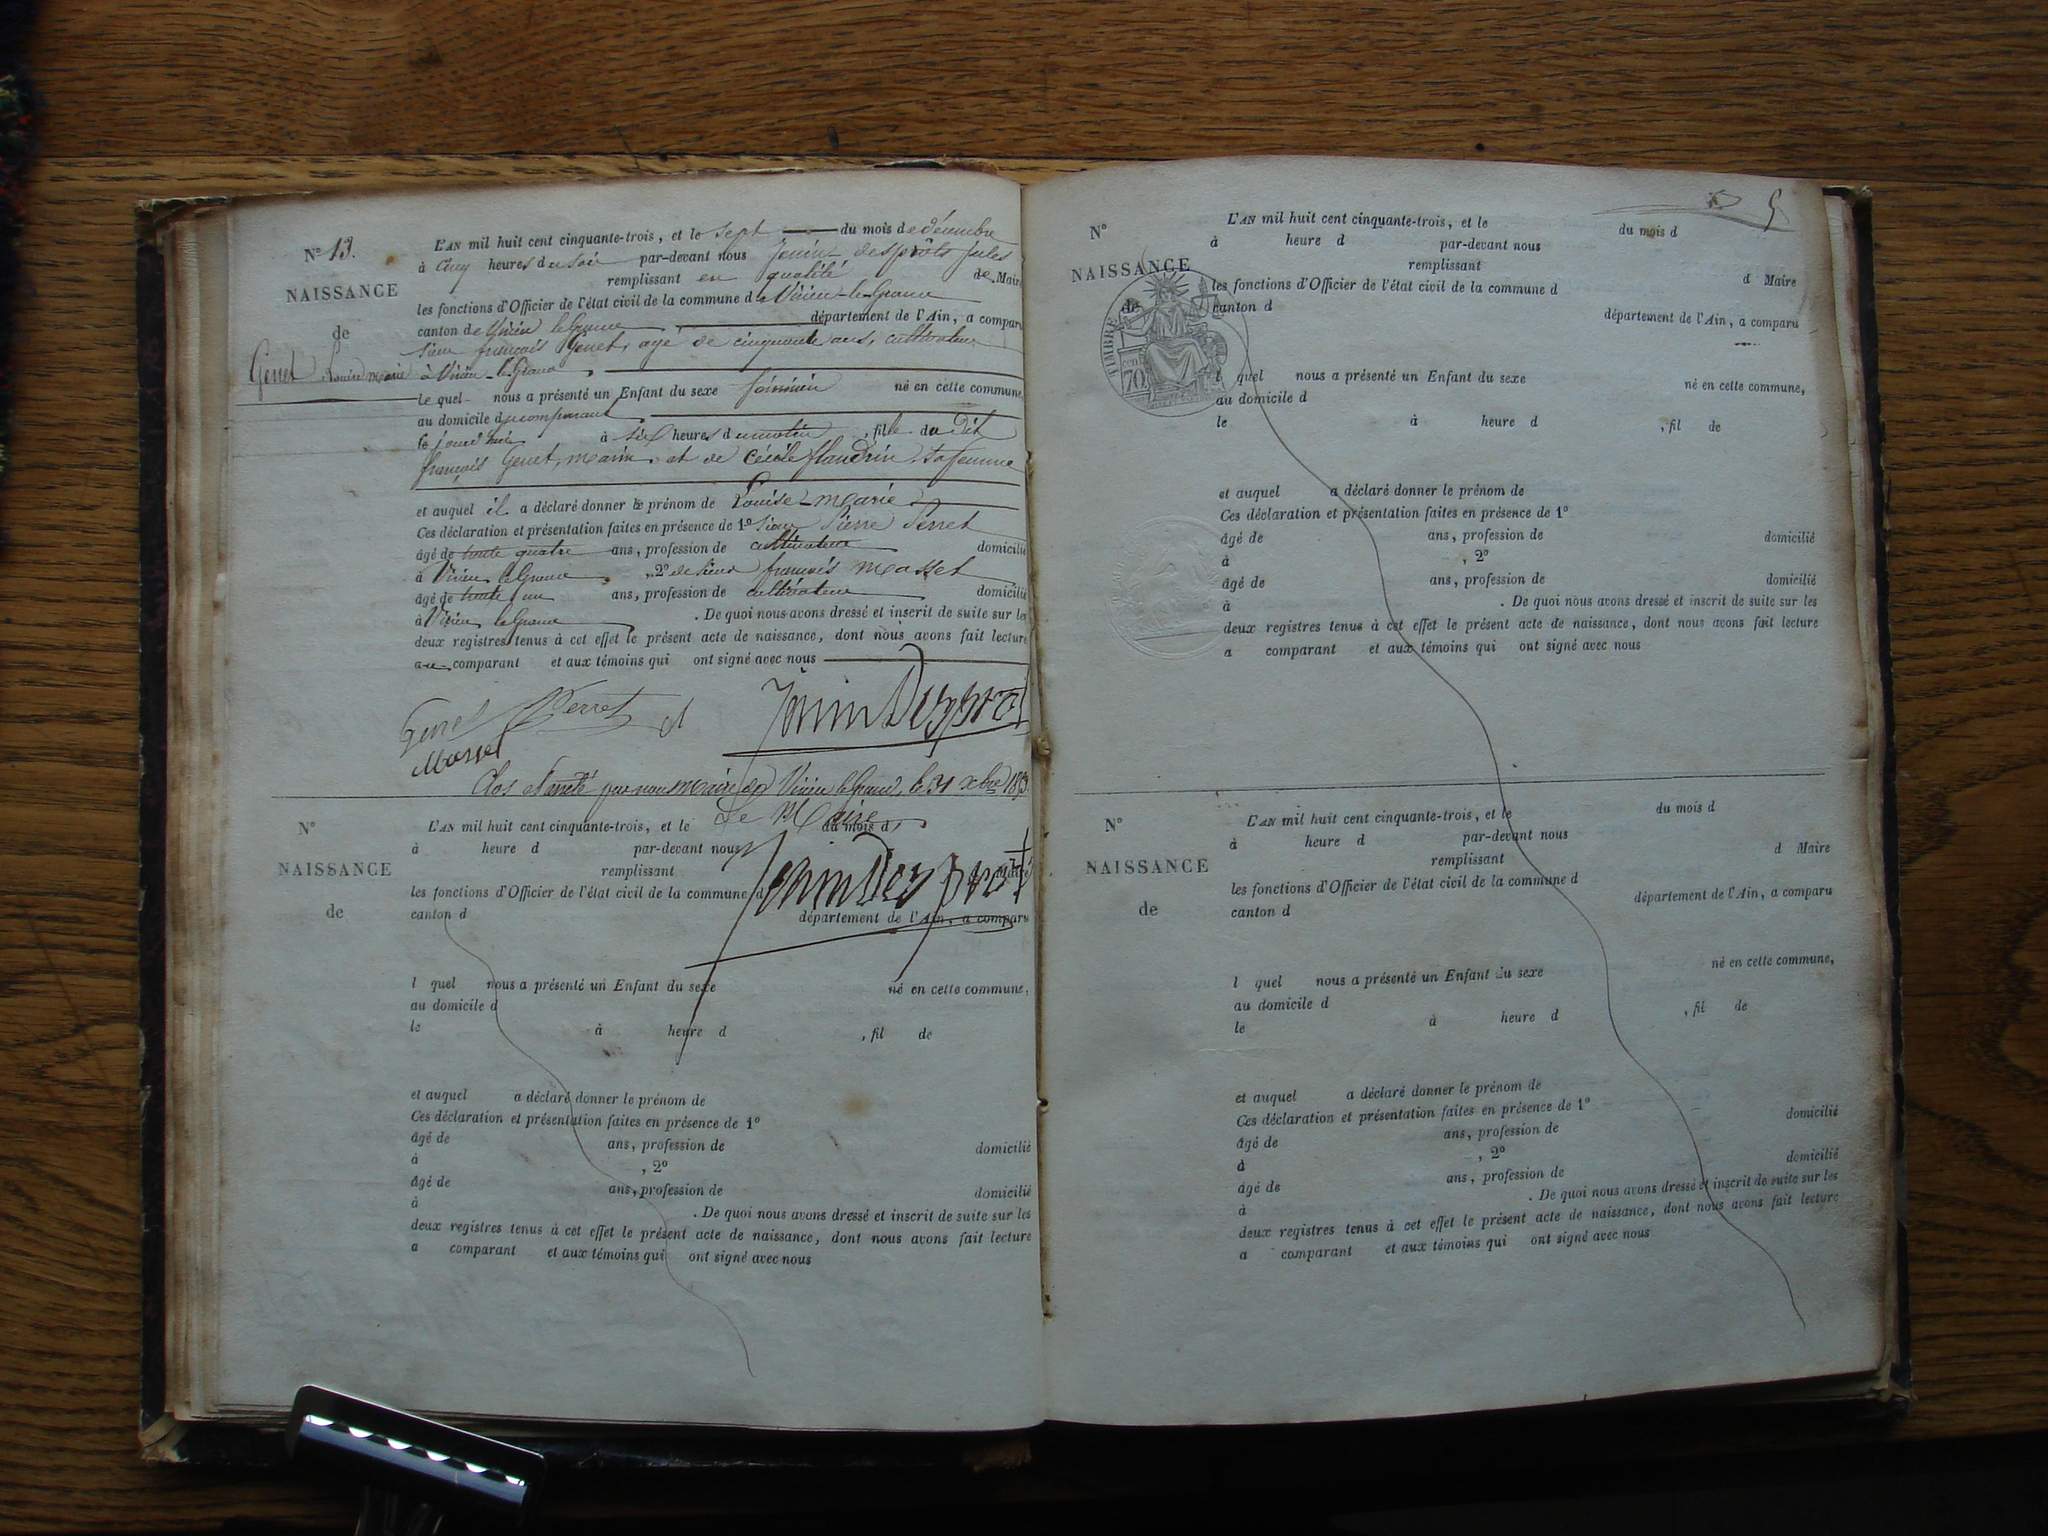 N° 13.
NAISSANCE
de
Genet Louise Marie
L'AN mil huit cent cinquante-trois, et le sept du mois de décembre
à cinq heures du soir par-devant nous Janin desprôts jules
remplissant en qualité de Maire
les fonctions d'Officier de l'état civil de la commune de Virieu-le-Grand
canton de Virieu le Grand département de l'Ain, a comparu
sieur françois Genet, agé de cinquante ans, cultivateur
à Virieu-le-Grand
le quel nous a présenté un Enfant du sexe féminin né en cette commune,
au domicile du comparant
le jourd'hui à six heures du matin, fille du dit
françois Genet, marin, et de Cécile flandrin, sa femme
et auquel il a déclaré donner le prénom de Louise-Marie
Ces déclaration et présentation faites en présence de 1° sieur Pierre Perret
âgé de trente quatre ans, profession de cultivateur domicilié
à Virieu le Grand, 2° de sieur françois Masset
âgé de trente un ans, profession de cultivateur domicilié
à Virieu le Grand. De quoi nous avons dressé et inscrit de suite sur les
deux registres tenus à cet effet le présent acte de naissance, dont nous avons fait lecture
au comparant et aux témoins qui ont signé avec nous
Genet Perret et Janin Desprot
Masset
Clos et arrêté par nous Maire de Virieu le Grand, le 31 xbre 1853.
Le Maire,
Janin Desprot
N°
NAISSANCE
de
L'AN mil huit cent cinquante-trois, et le du mois d
à heure d par-devant nous
remplissant Maire
les fonctions d'Officier de l'état civil de la commune d
canton d département de l'Ain, a comparu
l quel nous a présenté un Enfant du sexe né en cette commune,
au domicile d
le à heure d , fil de
et auquel a déclaré donner le prénom de
Ces déclaration et présentation faites en présence de 1°
âgé de ans, profession de domicilié
à , 2°
âgé de ans, profession de domicilié
à . De quoi nous avons dressé et inscrit de suite sur les
deux registres tenus à cet effet le présent acte de naissance, dont nous avons fait lecture
a comparant et aux témoins qui ont signé avec nous
5
N°
NAISSANCE
de
TIMBRE
70
L'AN mil huit cent cinquante-trois, et le du mois d
à heure d par-devant nous
remplissant d Maire
les fonctions d'Officier de l'état civil de la commune d
canton d département de l'Ain, a comparu
l quel nous a présenté un Enfant du sexe né en cette commune,
au domicile d
le à heure d , fil de
et auquel a déclaré donner le prénom de
Ces déclaration et présentation faites en présence de 1°
âgé de ans, profession de domicilié
à , 2°
âgé de ans, profession de domicilié
à . De quoi nous avons dressé et inscrit de suite sur les
deux registres tenus à cet effet le présent acte de naissance, dont nous avons fait lecture
a comparant et aux témoins qui ont signé avec nous
N°
NAISSANCE
de
L'AN mil huit cent cinquante-trois, et le du mois d
à heure d par-devant nous
remplissant d Maire
les fonctions d'Officier de l'état civil de la commune d
canton d département de l'Ain, a comparu
l quel nous a présenté un Enfant du sexe né en cette commune,
au domicile d
le à heure d , fil de
et auquel a déclaré donner le prénom de
Ces déclaration et présentation faites en présence de 1°
âgé de ans, profession de domicilié
à , 2°
âgé de ans, profession de domicilié
à . De quoi nous avons dressé et inscrit de suite sur les
deux registres tenus à cet effet le présent acte de naissance, dont nous avons fait lecture
a comparant et aux témoins qui ont signé avec nous